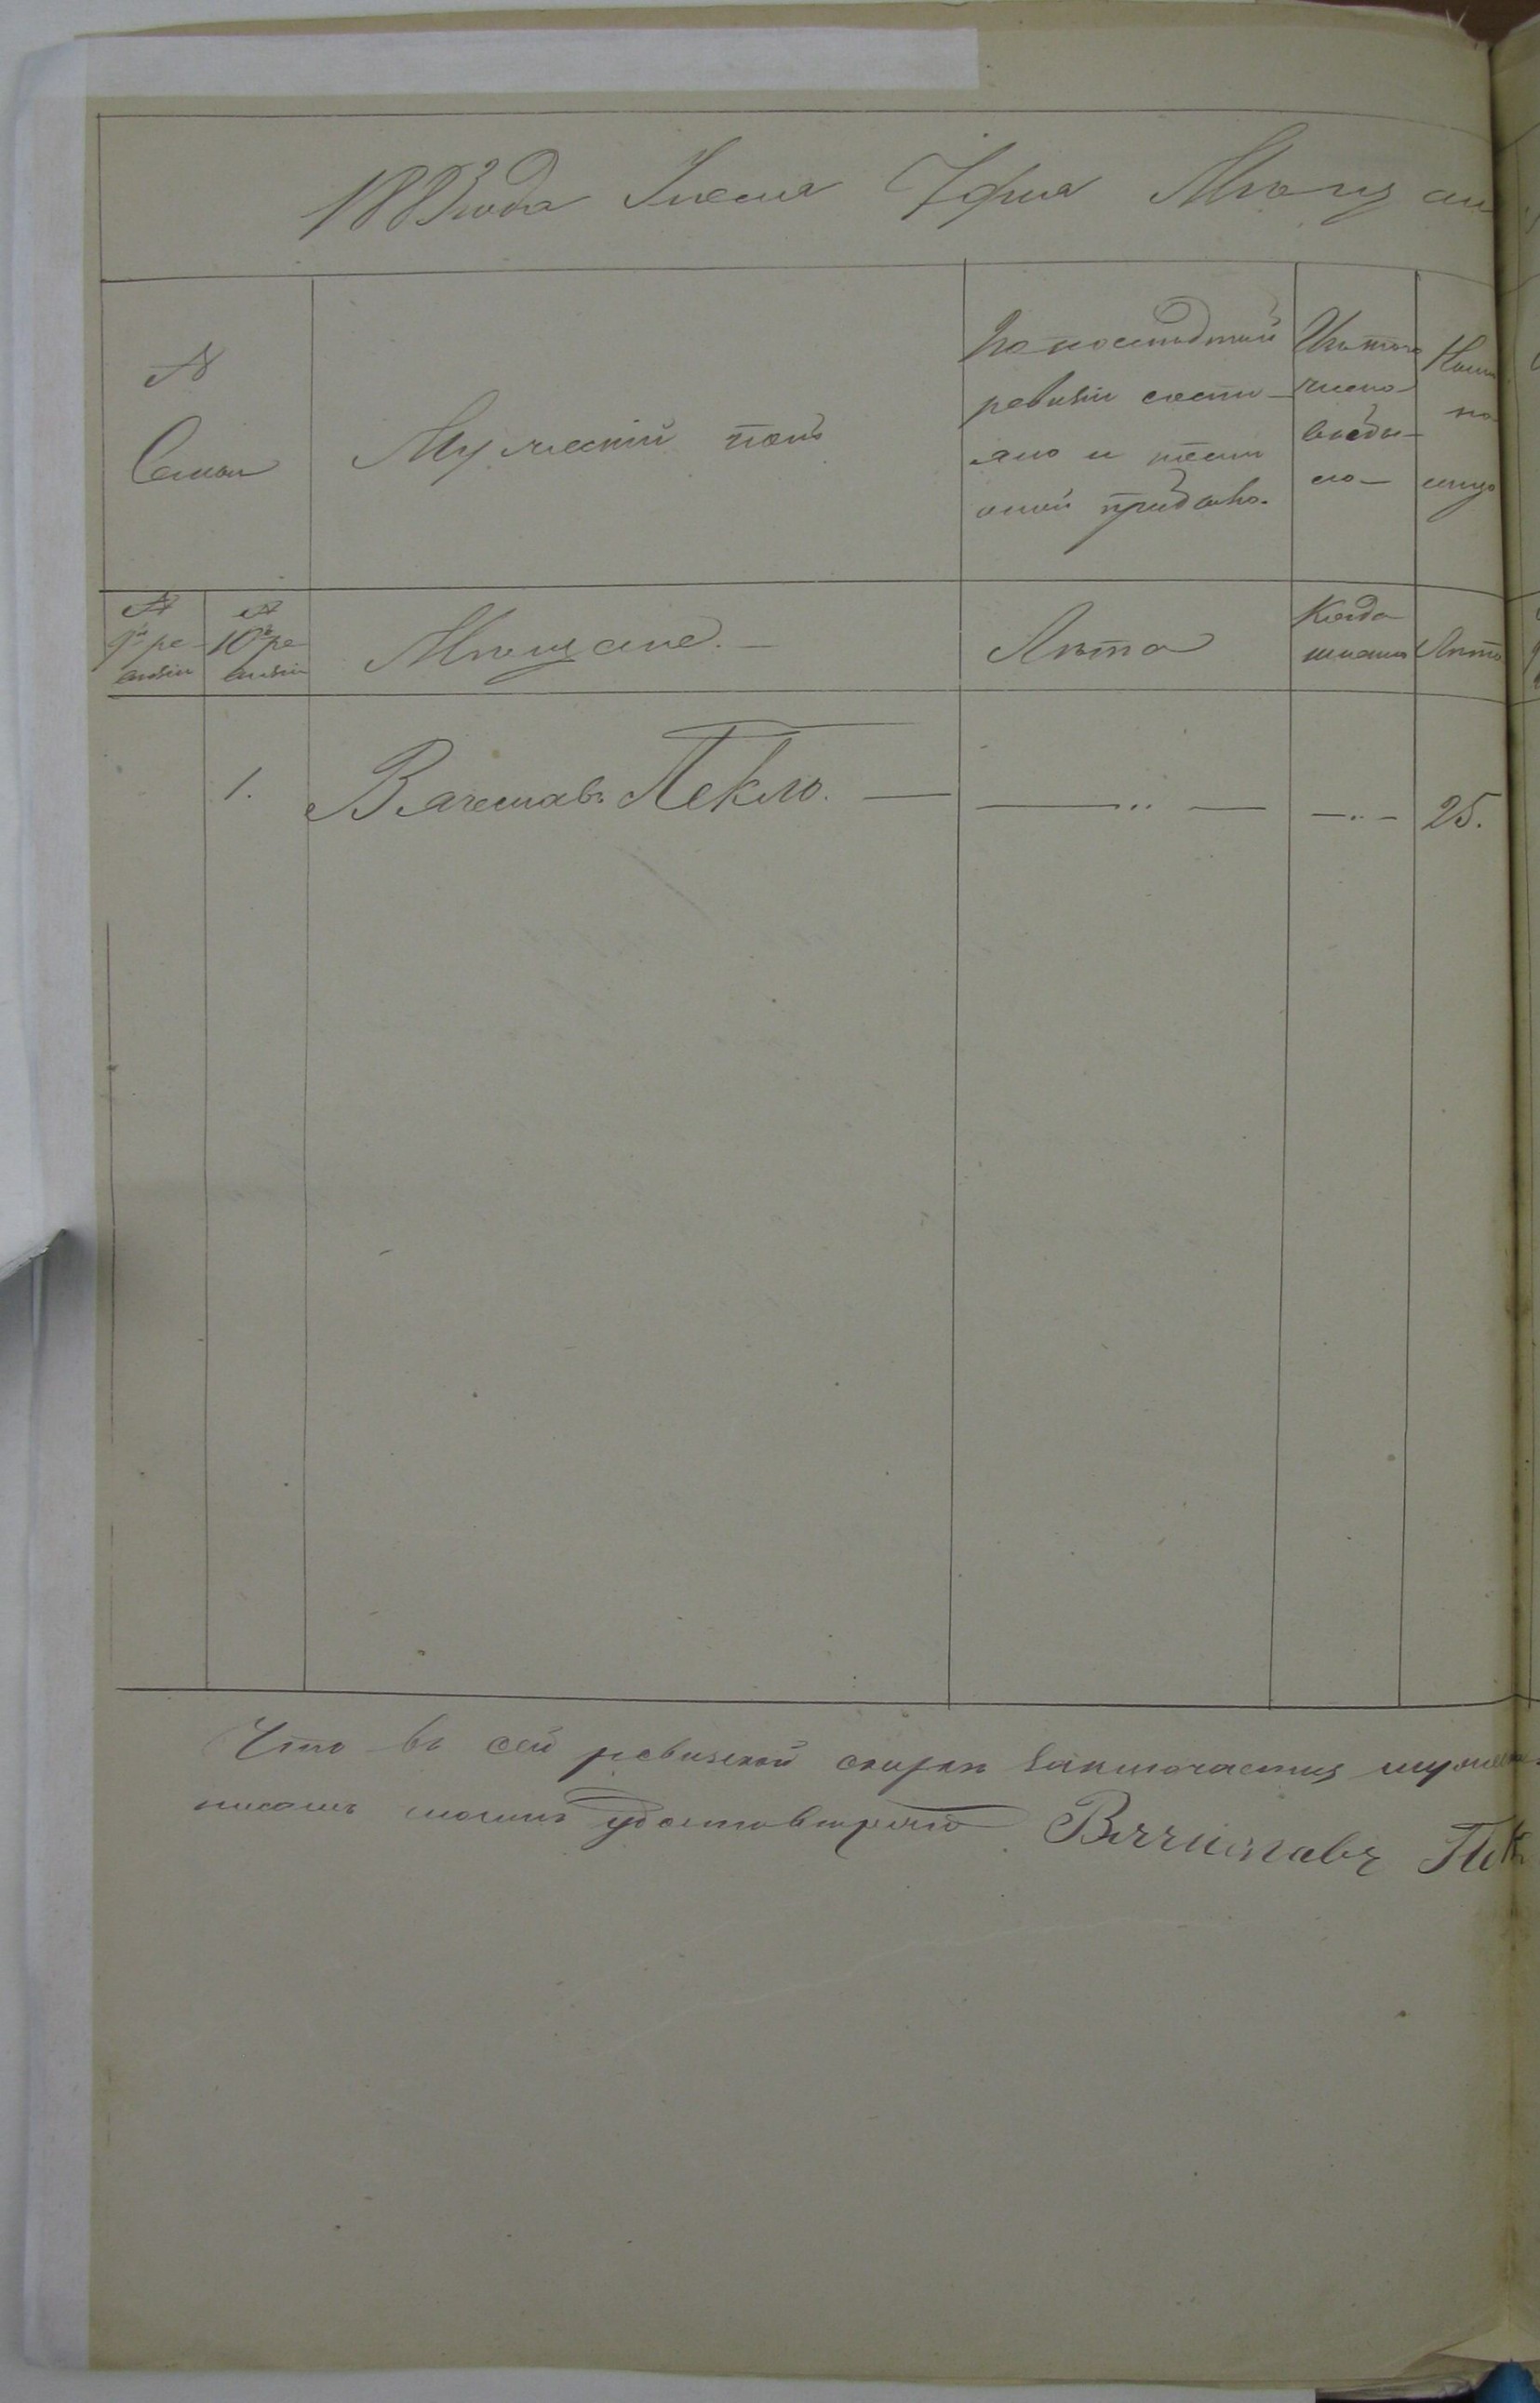 1883 года Июня Уфна Мѣщан
№
Семьи
Мужескiй полъ
По последней
ревизiи состо-
яло и после
оной прибыло.
Изъ того
числа
выбы-
ло
Ныне
на
лицо
№
9й ре-
визiи
№
10й ре-
визiи
Мѣщане.
Лѣта
Когда
именно
Лѣта
1.
Вячеславъ Пекло.
25.
Что въ сей ревизской сказкѣ заключается мужеска
писавъ удостовѣряю Вячиславъ Пек